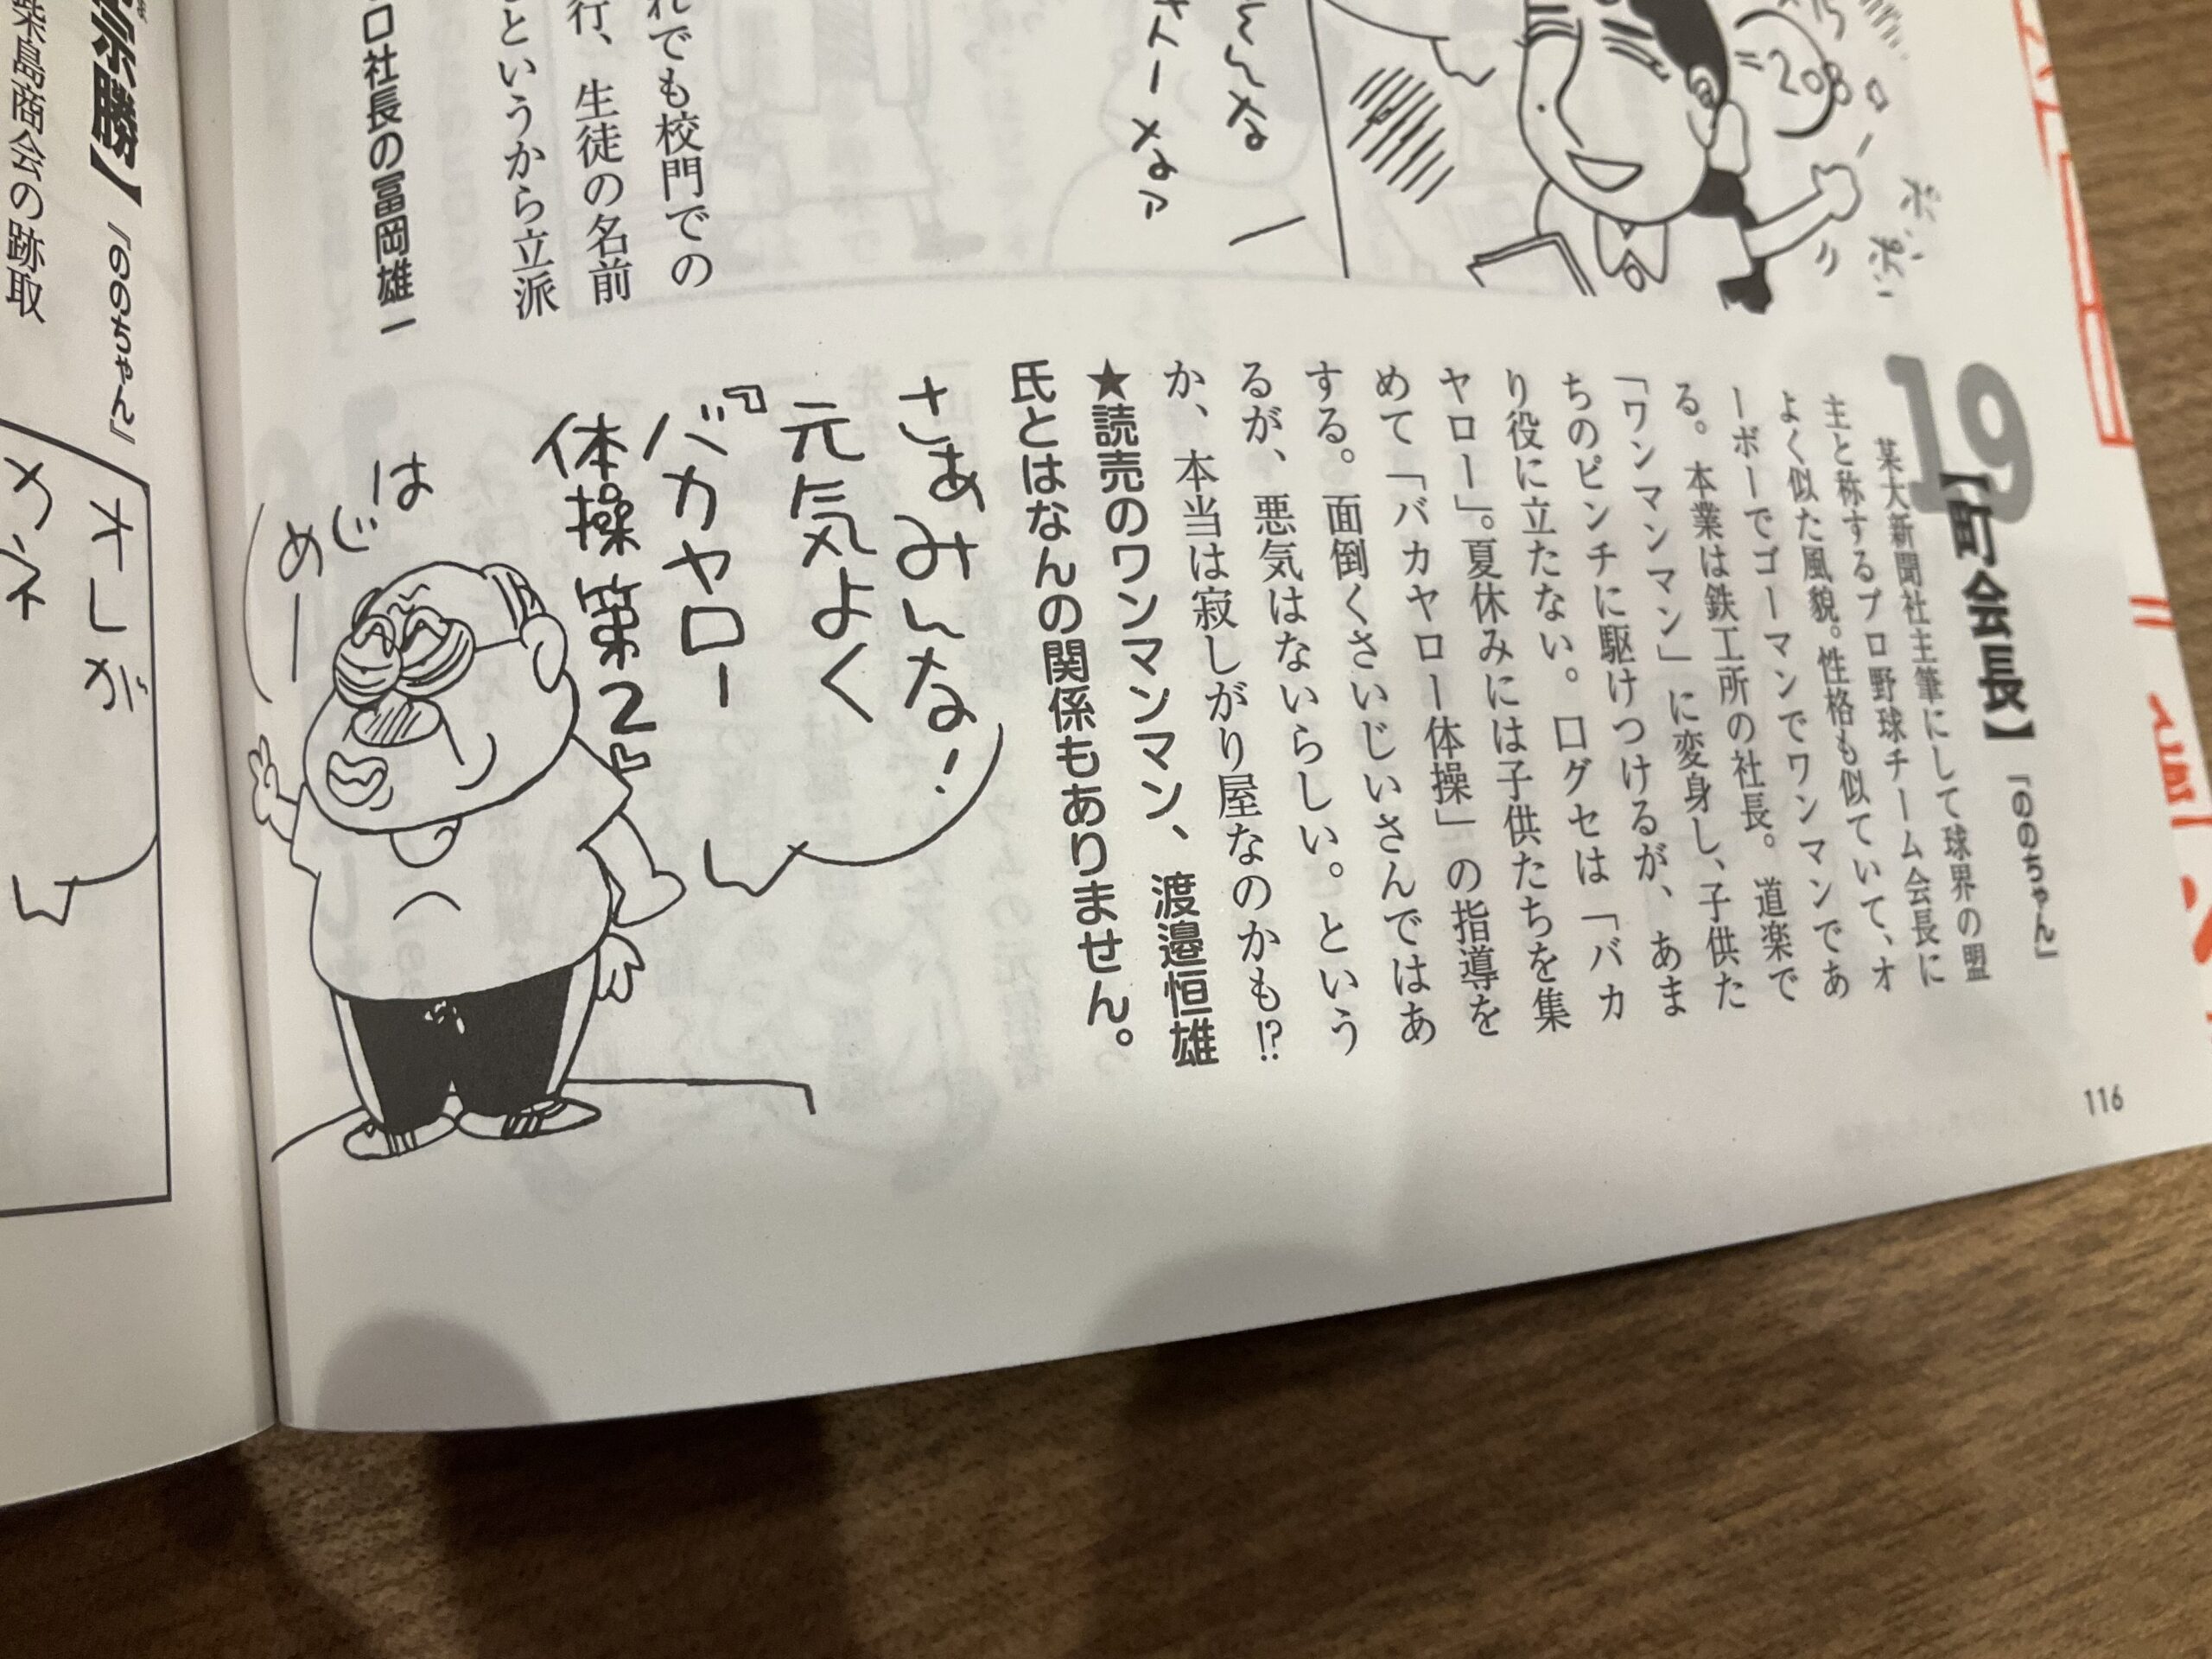 19
【町会長】『ののちゃん』
某大新聞社主筆にして球界の盟
主と称するプロ野球チーム会長に
よく似た風貌。性格も似ていて、オ
ーボーでゴーマンでワンマンであ
る。本業は鉄工所の社長。道楽で
「ワンマンマン」に変身し、子供た
ちのピンチに駆けつけるが、あま
り役に立たない。口グセは「バカ
ヤロー」。夏休みには子供たちを集
めて「バカヤロー体操」の指導を
する。面倒くさいじいさんではあ
るが、悪気はないらしい。という
か、本当は寂しがり屋なのかも!?
★読売のワンマンマン、渡邉恒雄
氏とはなんの関係もありません。
さあみんな!
元気よく
『バカヤロー
体操第2』
はじめー
116
208
れでも校門での
行、生徒の名前
というから立派
口社長の冨岡雄一
『ののちゃん』
柴島商会の跡取